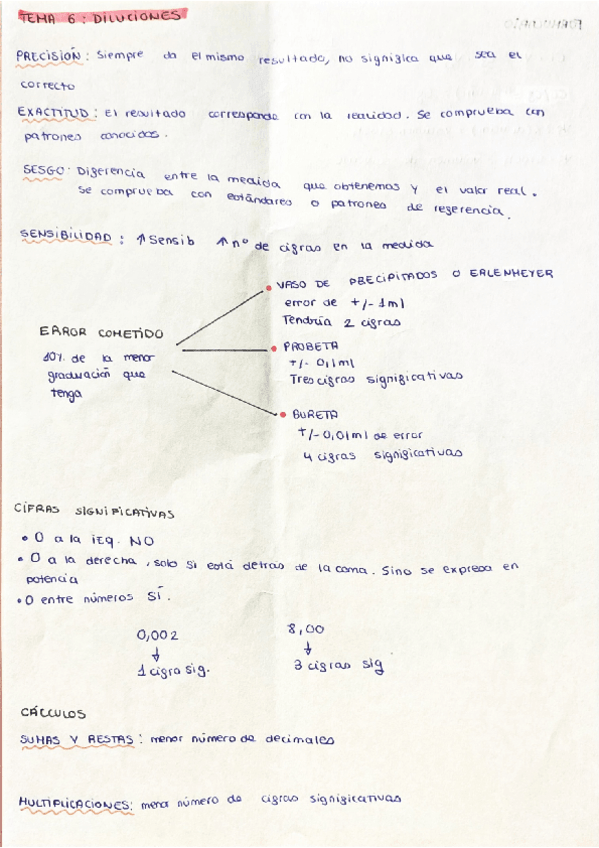 TEMA 6: DILUCIONES
PRECISIÓN: Siempre da el mismo resultado, no significa que sea el
correcto
EXACTITUD: El resultado corresponde con la realidad. Se comprueba con
patrones conocidos.
SESGO: Diferencia entre la medida que obtenemos y el valor real.
Se comprueba con estándares o patrones de referencia.
SENSIBILIDAD: ↑ Sensib ↑ nº de cifras en la medida
VASO DE PRECIPITADOS O ERLENMEYER
error de +/- 1ml
Tendría 2 cifras
ERROR COMETIDO
10% de la menor
graduación que
tenga
PROBETA
+/- 0,1ml
Tres cifras significativas
BURETA
+/- 0,01ml de error
4 cifras significativas
CIFRAS SIGNIFICATIVAS
• 0 a la izq. NO
• 0 a la derecha, solo si está detras de la coma. Sino se expresa en
potencia
• 0 entre números SÍ.
0,002 8,00
↓ ↓
1 cifra sig. 3 cifras sig
CÁLCULOS
SUMAS Y RESTAS: menor número de decimales
MULTIPLICACIONES: menor número de cifras significativas